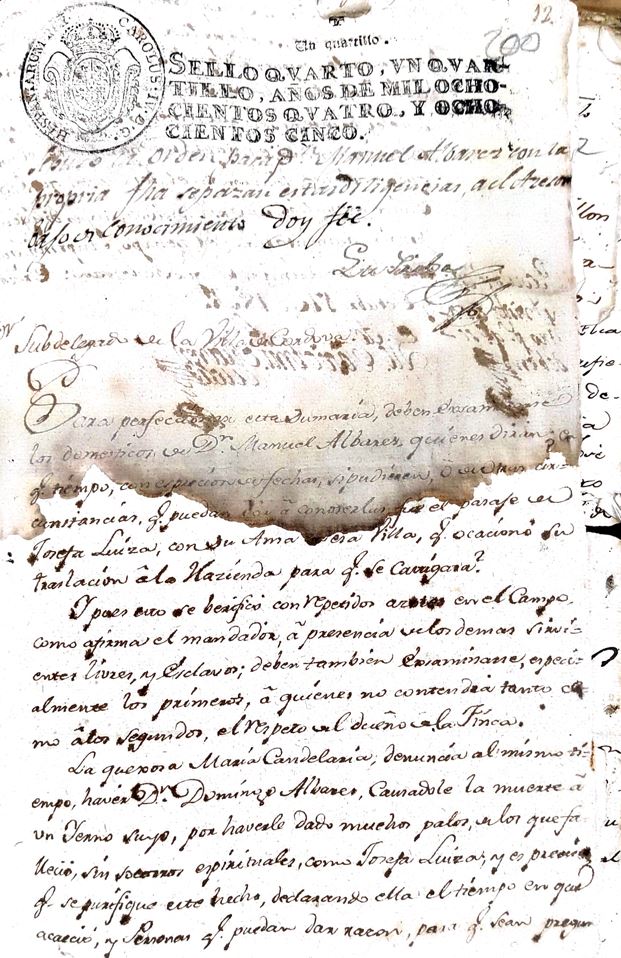 12
200
HISPANIARUM REX CAROLUS IV D G
Un quartillo.
SELLO QVARTO, VN QVAR-
TILLO, AÑOS DE MIL OCHO-
CIENTOS QVATRO, Y OCHO-
CIENTOS CINCO.
orden Manuel Albarez con la
propria fha se pazan estas diligencias, a el Acesor
conocimiento doy fee.
Subdelegado de la Villa de Cordova
Para perfeccionar esta Sumaria, deben Examinarse
los domesticos de Dn. Manuel Albarez, quienes diran en
q. tiempo, con espresion de fechas, si pudieren, ô de otras cir-
cunstancias, q. puedan dar â conoserlas, fue el pasaje de
Josefa Luiza, con su Ama Villa, q. ocacionó su
traslacion â la Hazienda para q. se Castigara?
Y pues esto se berificó con repetidos azotes en el Campo,
como afirma el mandador, â presencia de los demas Sirvi-
entes livres, y Esclavos; deben tambien Examinarse, especi-
almente los primeros, â quienes no contendrá tanto co-
mo â los segundos, el respeto al dueño de la Finca.
La quexosa Maria Candelaria, denuncia al mismo ti-
empo, haver Dn. Domingo Albares, Causadole la muerte â
un Yerno suyo, por haverle dado muchos palos, de los que fa-
lleció, sin socorros espirituales, como Josefa Luiza; y es preciso
q. se purifique este hecho, declarando ella el tiempo en que
acaeció, y Personas q. puedan dar razon, para q. sean pregun